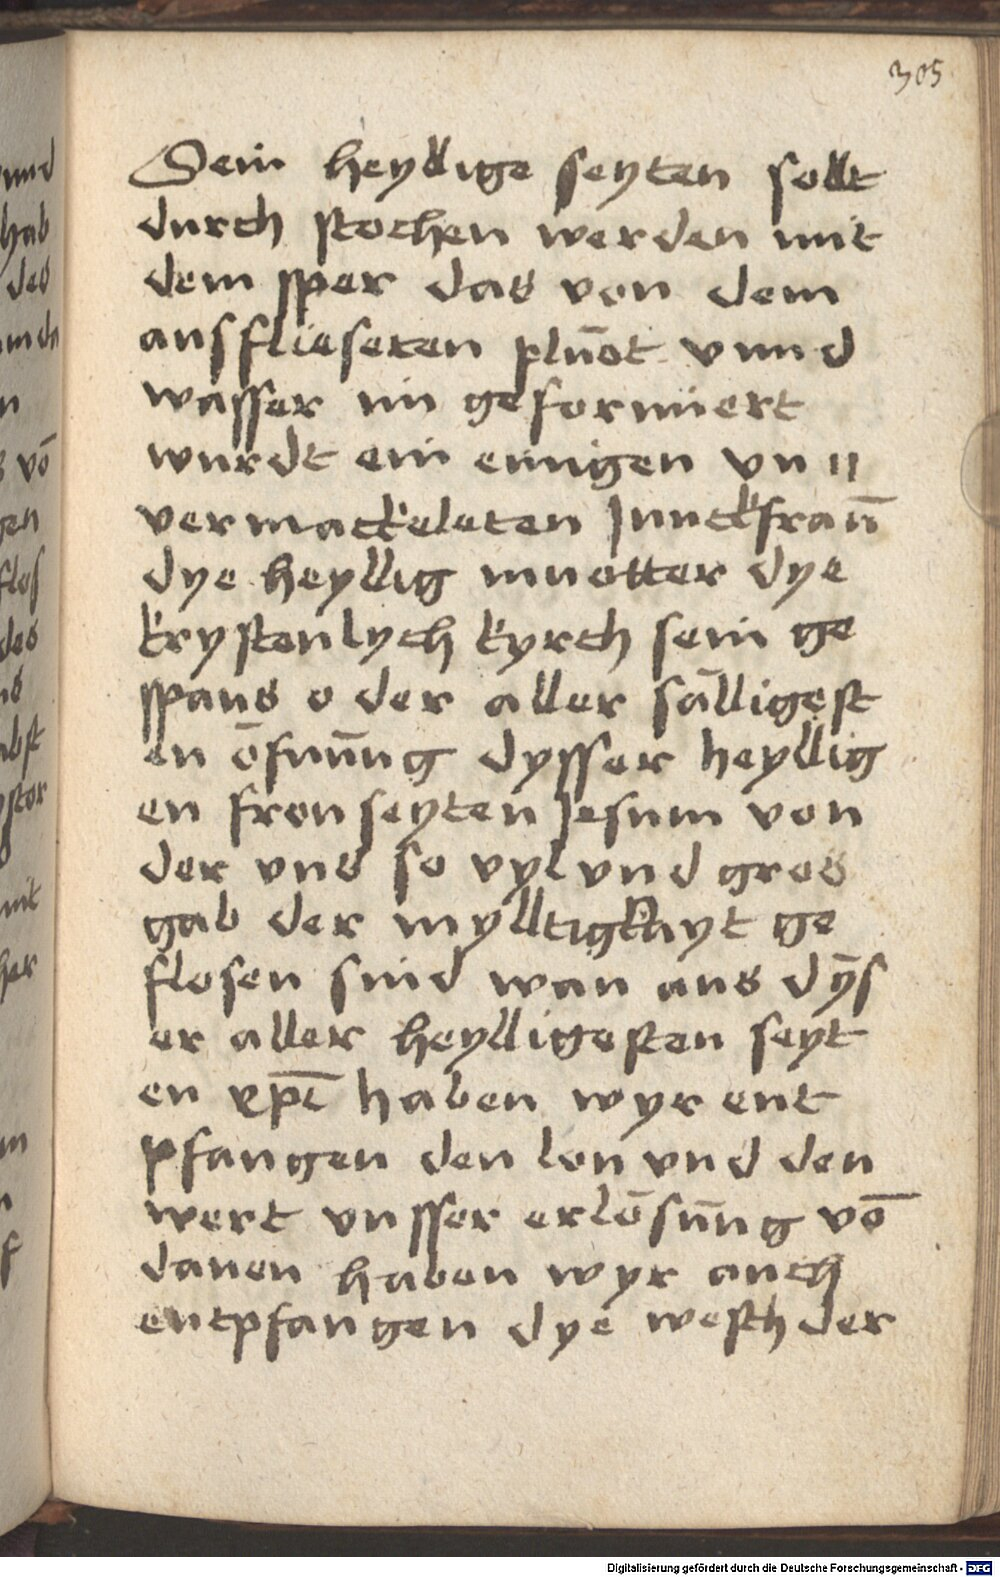 305
Sein heyllige seyten sollt
durch stochen werden mit
dem sper das von dem
ausflieseten plūot vnnd
wasser im geformiert
wurdt ein einigen vn॥
vermackeleten Junckfraū
dye heyllig muotter dye
krystenlych kyrch sein ge
spans o der aller sālligest
en ōfnūng dysser heyllig
en fronseyten Jesum von
der vns so vyl vnd gros
gab der mylltigkhyt ge
flosen sind wan aus dȳs
er aller heylligesten seyt
en xp̄i haben wyr ent
pfangen den lon vnd den
wert vnsser erlōsūng vō
danen haben wyr auch
entpfangen dye wesch der
Digitalisierung gefördert durch die Deutsche Forschungsgemeinschaft - DFG